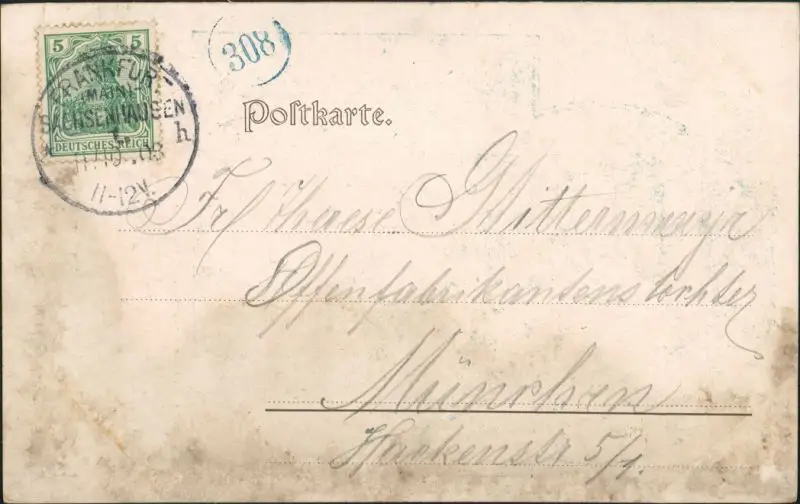 5 5
308
FRANKFURT
(MAIN)-
SACHSENHAUSEN
h
DEUTSCHES REICH
11-12V.
Postkarte.
Frl Therese Mittermayr
Offenfabrikantenstochter
München
Hackenstr 5/1.